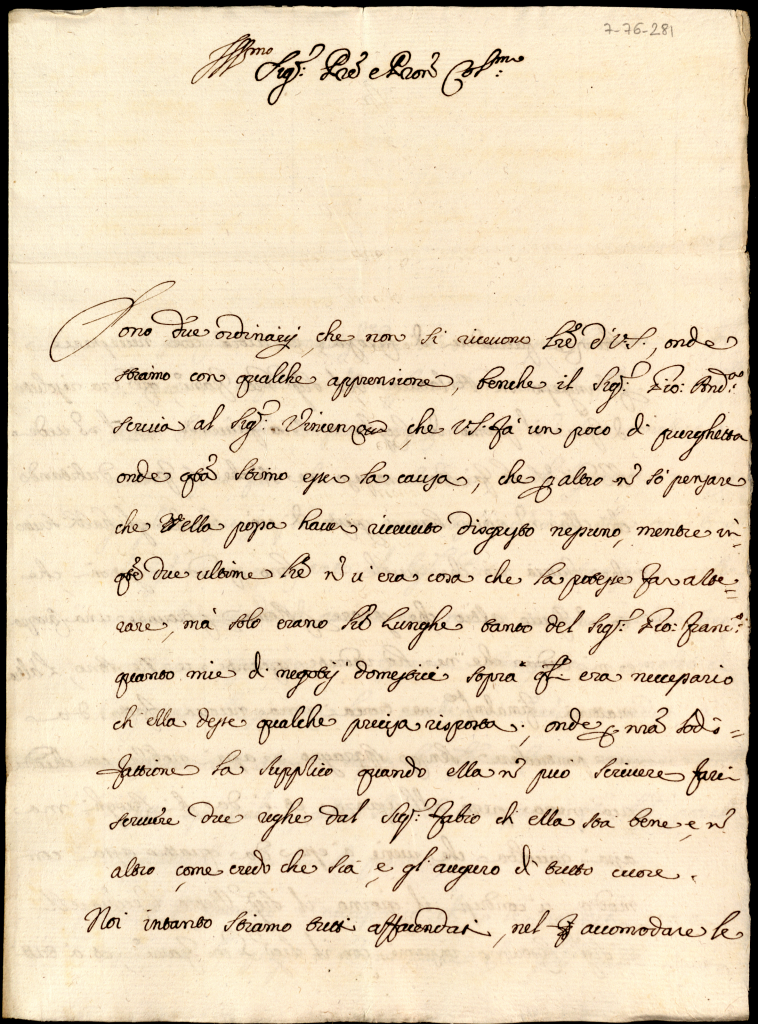 7-76-281
Illmo Sigr: Pre e Pron Colmo:
Sono due ordinarij, che non si ricevono lre d'VS., onde
stiamo con qualche apprensione, benche il Sigr: Gio: Andra
scriva al Sigr: Vincenzo, che VS. fà un poco di purghetta
onde qta stimo esser la causa, che p altro n so pensare
che ella possa haver ricevuto disgusto nessuno, mentre in
qste due ultime lre n vi era cosa che la potesse far alte-
rare, mà solo erano lre lunghe tanto del Sigr: Gio: Franco:
quanto mie di negotij domestici sopra qli era necessario
ch'ella desse qualche precisa risposta; onde p nra sodis-
fattione la supplico quando ella n può scrivere fari
scrivere due righe dal Sigr: Fabio ch'ella stà bene, e n
altro, come credo che sia, e gl'auguro di tutto cuore.
Noi intanto stiamo tutti affacendati, nel accomodare le